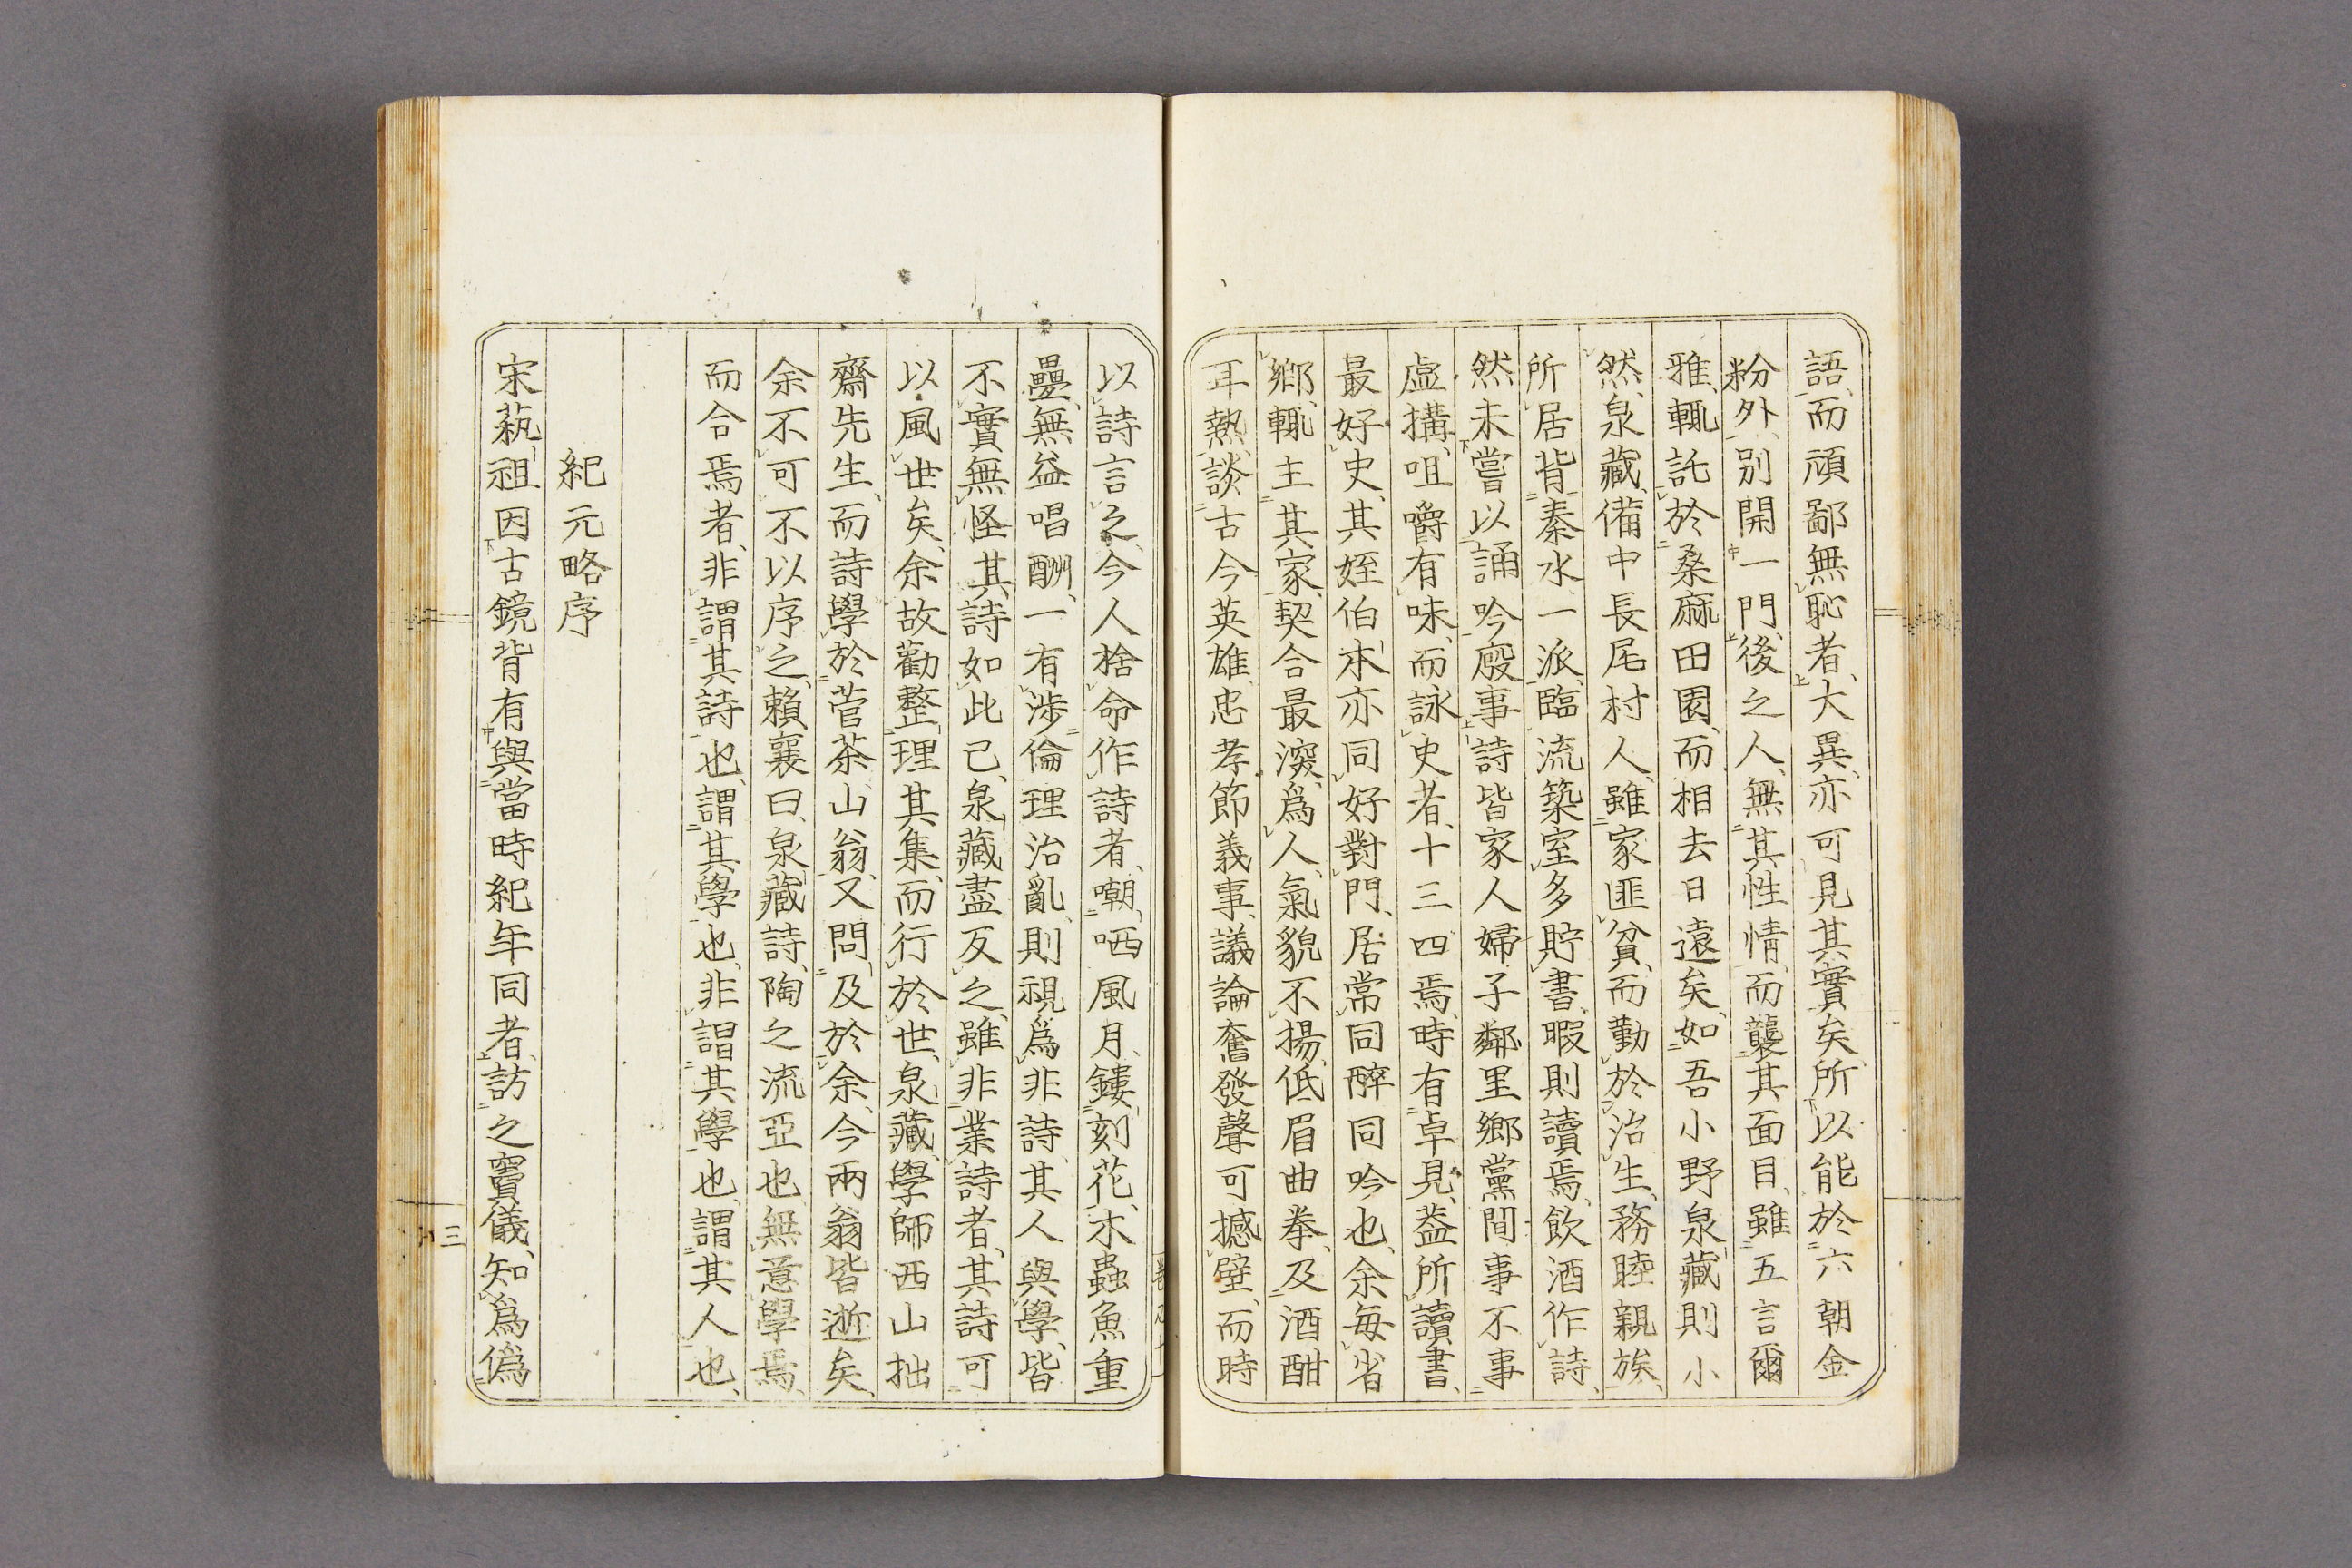 語、而頑鄙無恥者、大異、亦可見其實矣、所以能於六朝金
粉外、別開一門、後之人、無其性情、而襲其面目、雖五言爾
雅、輒託於桑麻田園、而相去日遠矣、如吾小野泉藏則小
然、泉藏、備中長尾村人、雖家匪貧、而勤於治生、務睦親族、
所居背秦水一派、臨流築室、多貯書、暇則讀焉、飲酒作詩、
然未嘗以誦吟廢事、詩皆家人婦子鄰里鄉黨間事、不事
虛搆、咀嚼有味、而詠史者、十三四焉、時有卓見、蓋所讀書、
最好史、其姪伯本亦同好、對門、居常同醉同吟也、余每省
鄉、輒主其家、契合最深、爲人、氣貌不揚、低眉曲拳、及酒酣
耳熱、談古今英雄、忠孝節義事、議論奮發、聲可撼壁、而時
以詩言之、今人捨命作詩者、嘲哂風月、鏤刻花木蟲魚、重
疊無益唱酬、一有涉倫理治亂、則視爲非詩、其人與學、皆
不實、無怪其詩如此已、泉藏盡反之、雖非業詩者、其詩可
以風世矣、余故勸整理其集、而行於世、泉藏學師西山拙
齋先生、而詩學於菅茶山翁、又問及於余、今兩翁皆逝矣、
余不可不以序之、賴襄曰、泉藏詩、陶之流亞也、無意學焉、
而合焉者、非謂其詩也、謂其學也、非謂其學也、謂其人也、
紀元略序
宋蓺祖因古鏡背有與當時紀年同者、訪之竇儀、知爲僞
三